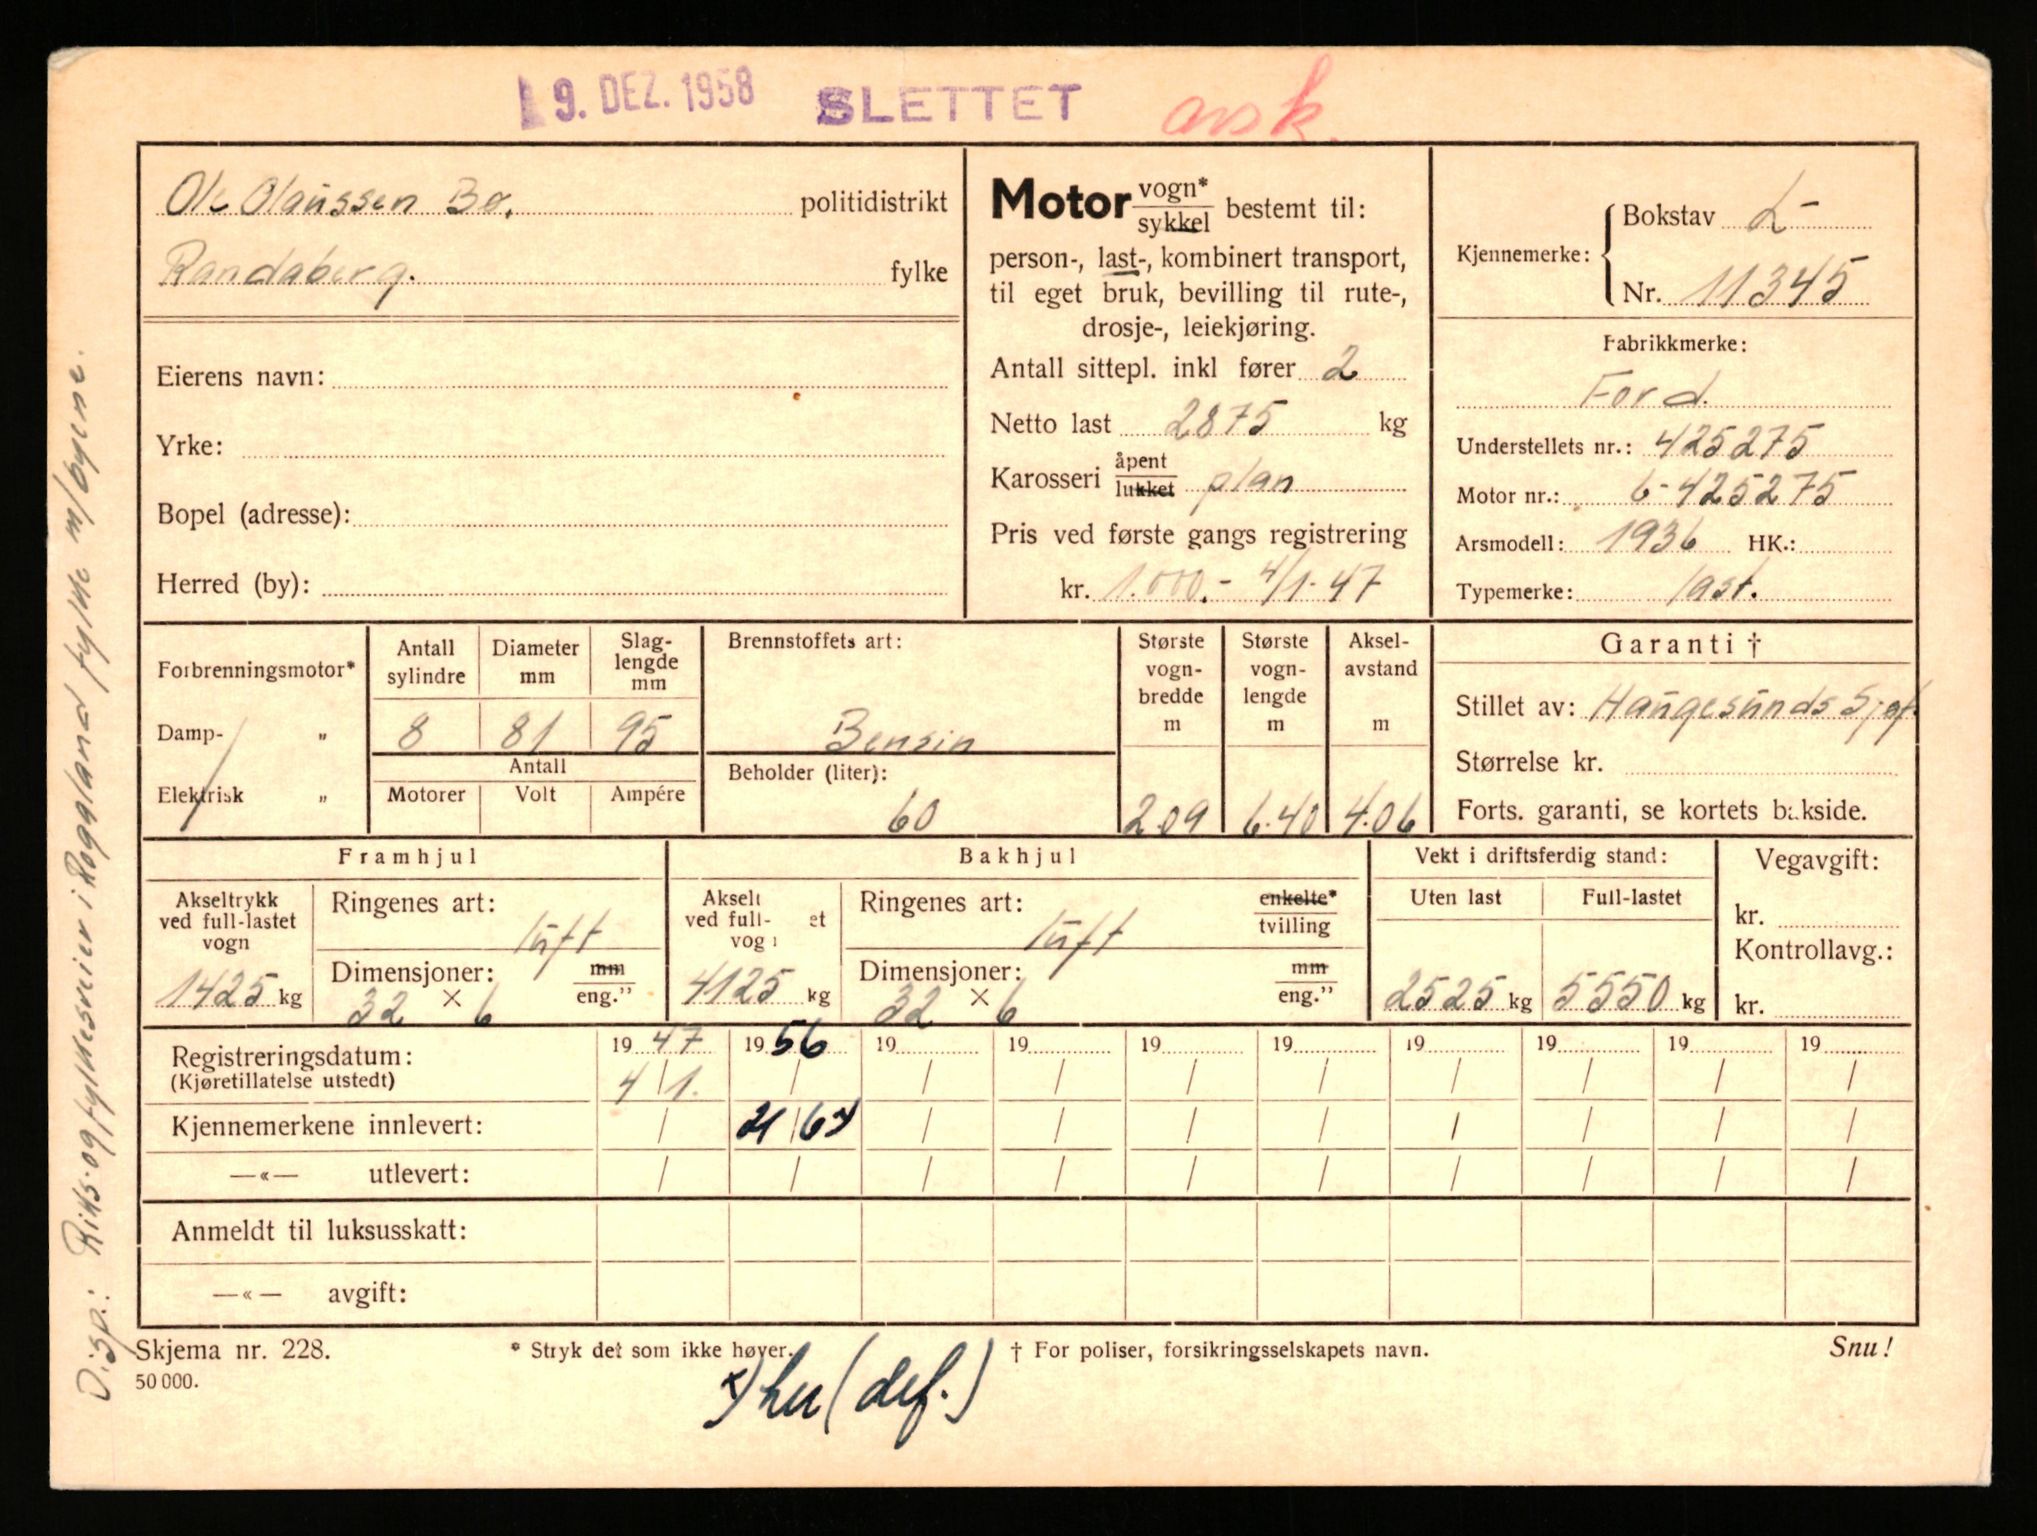 9. DEZ. 1958 SLETTET avsk.
Ole Olaussen Bø. politidistrikt
Randaberg. fylke
Eierens navn:
Yrke:
Bopel (adresse):
Herred (by):
Motor vogn* / sykkel bestemt til:
person-, last-, kombinert transport,
til eget bruk, bevilling til rute-,
drosje-, leiekjøring.
Antall sittepl. inkl fører 2
Netto last 2875 kg
Karosseri åpent / lukket plan
Pris ved første gangs registrering
kr. 1.000.- 4/1-47
Kjennemerke: Bokstav L-
Nr. 11345
Fabrikkmerke:
Ford.
Understellets nr.: 425275
Motor nr.: 6-425275
Arsmodell: 1936 HK.:
Typemerke: last.
Forbrenningsmotor*
Damp- "
Elektrisk "
Antall sylindre
8
Diameter mm
81
Slag-lengde mm
95
Antall
Motorer Volt Ampére
Brennstoffets art:
Bensin
Beholder (liter):
60
Største vogn-bredde m
2.09
Største vogn-lengde m
6.40
Aksel-avstand m
4.06
Garanti †
Stillet av: Haugesunds Sjøf.
Størrelse kr.
Forts. garanti, se kortets bakside.
Framhjul
Akseltrykk
ved full-lastet
vogn
1425 kg
Ringenes art:
luft
Dimensjoner: mm / eng."
32 × 6
Bakhjul
Akselt
ved full- et
vog
4125 kg
Ringenes art: enkelte* / tvilling
luft
Dimensjoner: mm / eng."
32 × 6
Vekt i driftsferdig stand:
Uten last Full-lastet
2525 kg 5550 kg
Vegavgift:
kr.
Kontrollavg.:
kr.
Registreringsdatum: 19 47 19 56 19 19 19 19 19 19 19 19
(Kjøretillatelse utstedt) 4/1. / / / / / / / / /
Kjennemerkene innlevert: / / / / / / / / /
—«— utlevert: / / / / / / / / / /
Anmeldt til luksusskatt:
—«— avgift:
Skjema nr. 228. * Stryk det som ikke høver. † For poliser, forsikringsselskapets navn. Snu!
50 000.
x) her (def.)
Disp.: Riks- og fylkesveier i Roggland fylke m/byene.